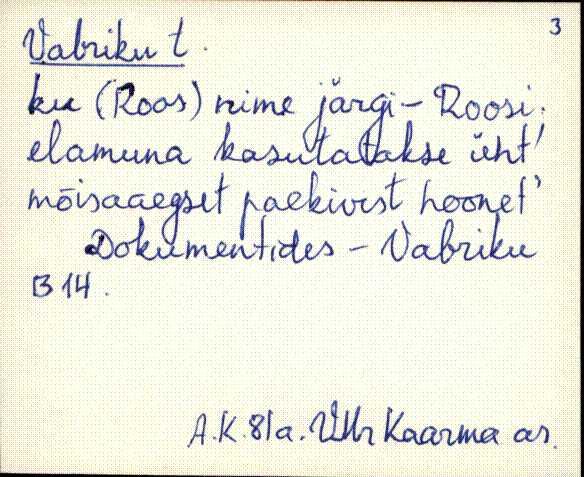 3
Vabriku t.
ku (Roos) nime järgi - Roosi.
elamuna kasutatakse üht'
mõisaaegset paekivist hoonet'
Dokumentides - Vabriku
B 14.
A.K. 81a. Kaarma as.